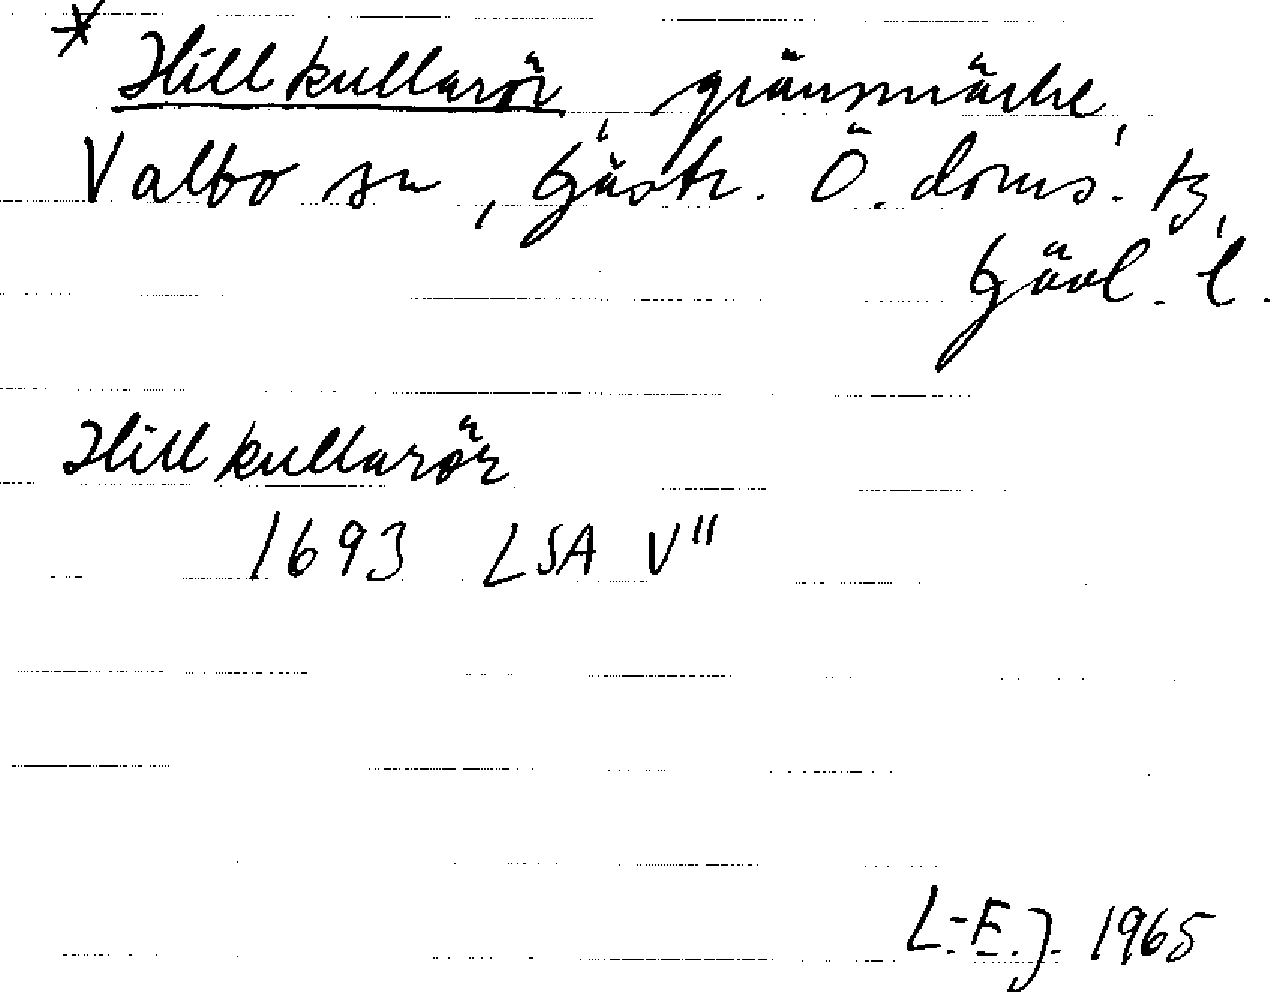 * Hillkullarör, gränsmärke,
Valbo sn, Gästr. Ö. doms. tg,
Gävl. l.
Hillkullarör
1693 LSA V"
L-E.J. 1965